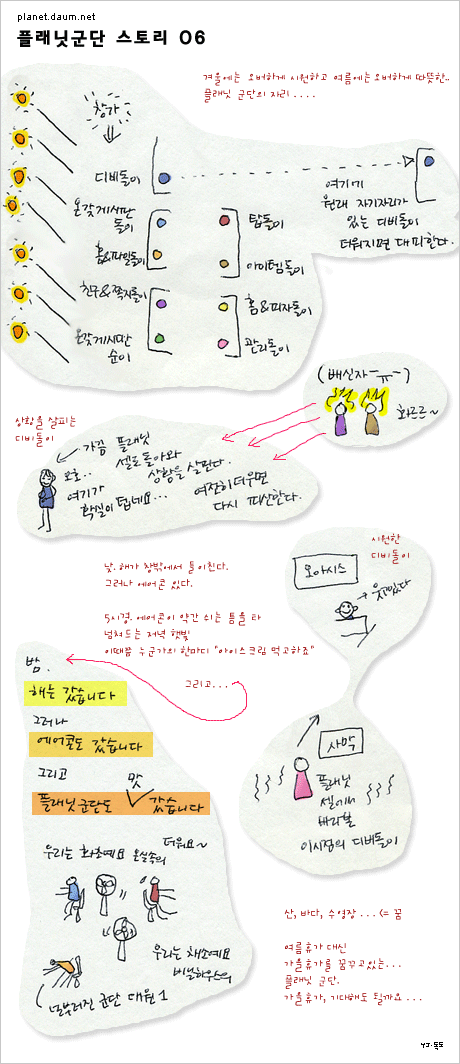 planet.daum.net
플래닛군단 스토리 06
겨울에는 오버하게 시원하고 여름에는 오버하게 따뜻한..
플래닛 군단의 자리....
창가
디비돌이
여기에
원래 자기자리가
있는 디비돌이
더워지면 대피한다.
온갖게시판
돌이
탑돌이
홈&파일돌이
아이템돌이
친구&쪽지돌이
홈&피자돌이
온갖게시판
순이
관리돌이
(배신자-ㅠ-)
화르르~
상황을 살피는
디비돌이
가끔 플래닛
셀로 돌아와
상황을 살핀다.
오호..
여기가
확실히 덥네요...
여전히 더우면
다시 피신한다.
시원한
디비돌이
오아시스
낮. 해가 창밖에서 들이친다.
그러나 에어콘 있다.
5시경. 에어콘이 약간 쉬는 틈을 타
넘쳐드는 저녁 햇빛
이때쯤 누군가의 한마디 "아이스크림 먹고하죠"
그리고...
밤.
해는 갔습니다
그러나
에어콘도 갔습니다
그리고
맛
플래닛군단도 갔습니다
사막
플래닛
셀에서
바라본
이시점의 디비돌이
우리는 화초예요 온실속의
더워요~
우리는 채소예요
비닐하우스의
널부러진 군단 대원1
산, 바다, 수영장 ... (= 꿈
여름휴가 대신
가을휴가를 꿈꾸고있는...
플래닛 군단.
가을휴가, 기대해도 될까요...